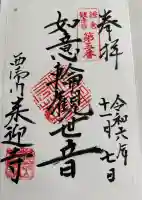 奉拝
令和六年
十一月七日
第三番
如意輪観世音
来迎寺